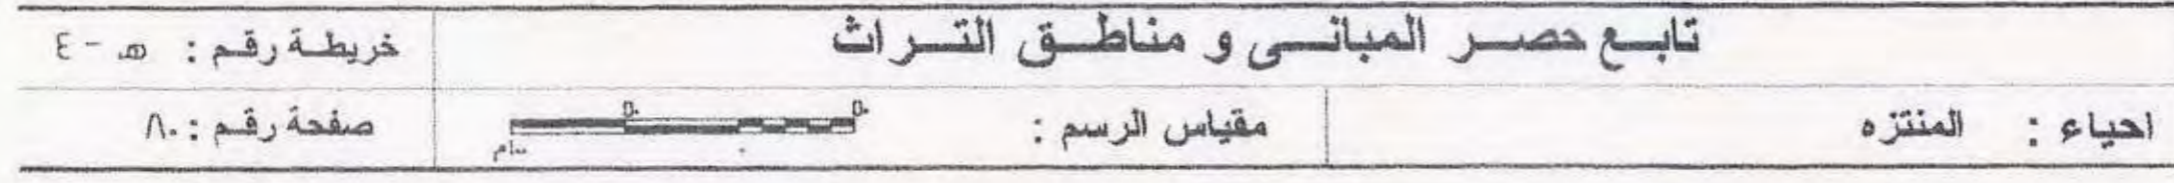 تابع حصر المبانى و مناطق التراث
خريطة رقم : هـ - ٤
احياء : المنتزه
مقياس الرسم :
صفحة رقم : ٨٠